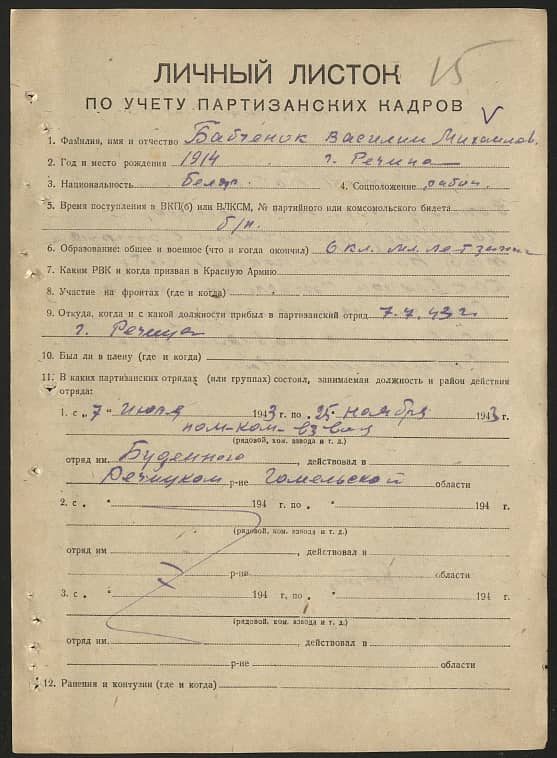 15
ЛИЧНЫЙ ЛИСТОК
ПО УЧЕТУ ПАРТИЗАНСКИХ КАДРОВ
1. Фамилия, имя и отчество Бабченок Василий Михайлов.
2. Год и место рождения 1914 г. Речица
3. Национальность белор. 4. Соцположение рабоч.
5. Время поступления в ВКП(б) или ВЛКСМ, № партийного или комсомольского билета
б/п.
6. Образование: общее и военное (что и когда окончил) 6 кл. мл. лейтенант
7. Каким РВК и когда призван в Красную Армию
8. Участие на фронтах (где и когда)
9. Откуда, когда и с какой должности прибыл в партизанский отряд 7.7.43 г.
г. Речица
10. Был ли в плену (где и когда)
11. В каких партизанских отрядах (или группах) состоял, занимаемая должность и район действия
отряда:
1. с „7" июля 1943 г. по „25" ноября 1943 г.
пом-ком-взвода
(рядовой, ком. взвода и т. д.)
отряд им. Буденного, действовал в
Речицком р-не Гомельской области
2. с „ " 194 г. по „ " 194 г.
(рядовой, ком. взвода и т. д.)
отряд им, действовал в
р-не области
3. с „ " 194 г. по „ " 194 г.
(рядовой, ком. взвода и т. д.)
отряд им. действовал в
р-не области
12. Ранения и контузии (где и когда)